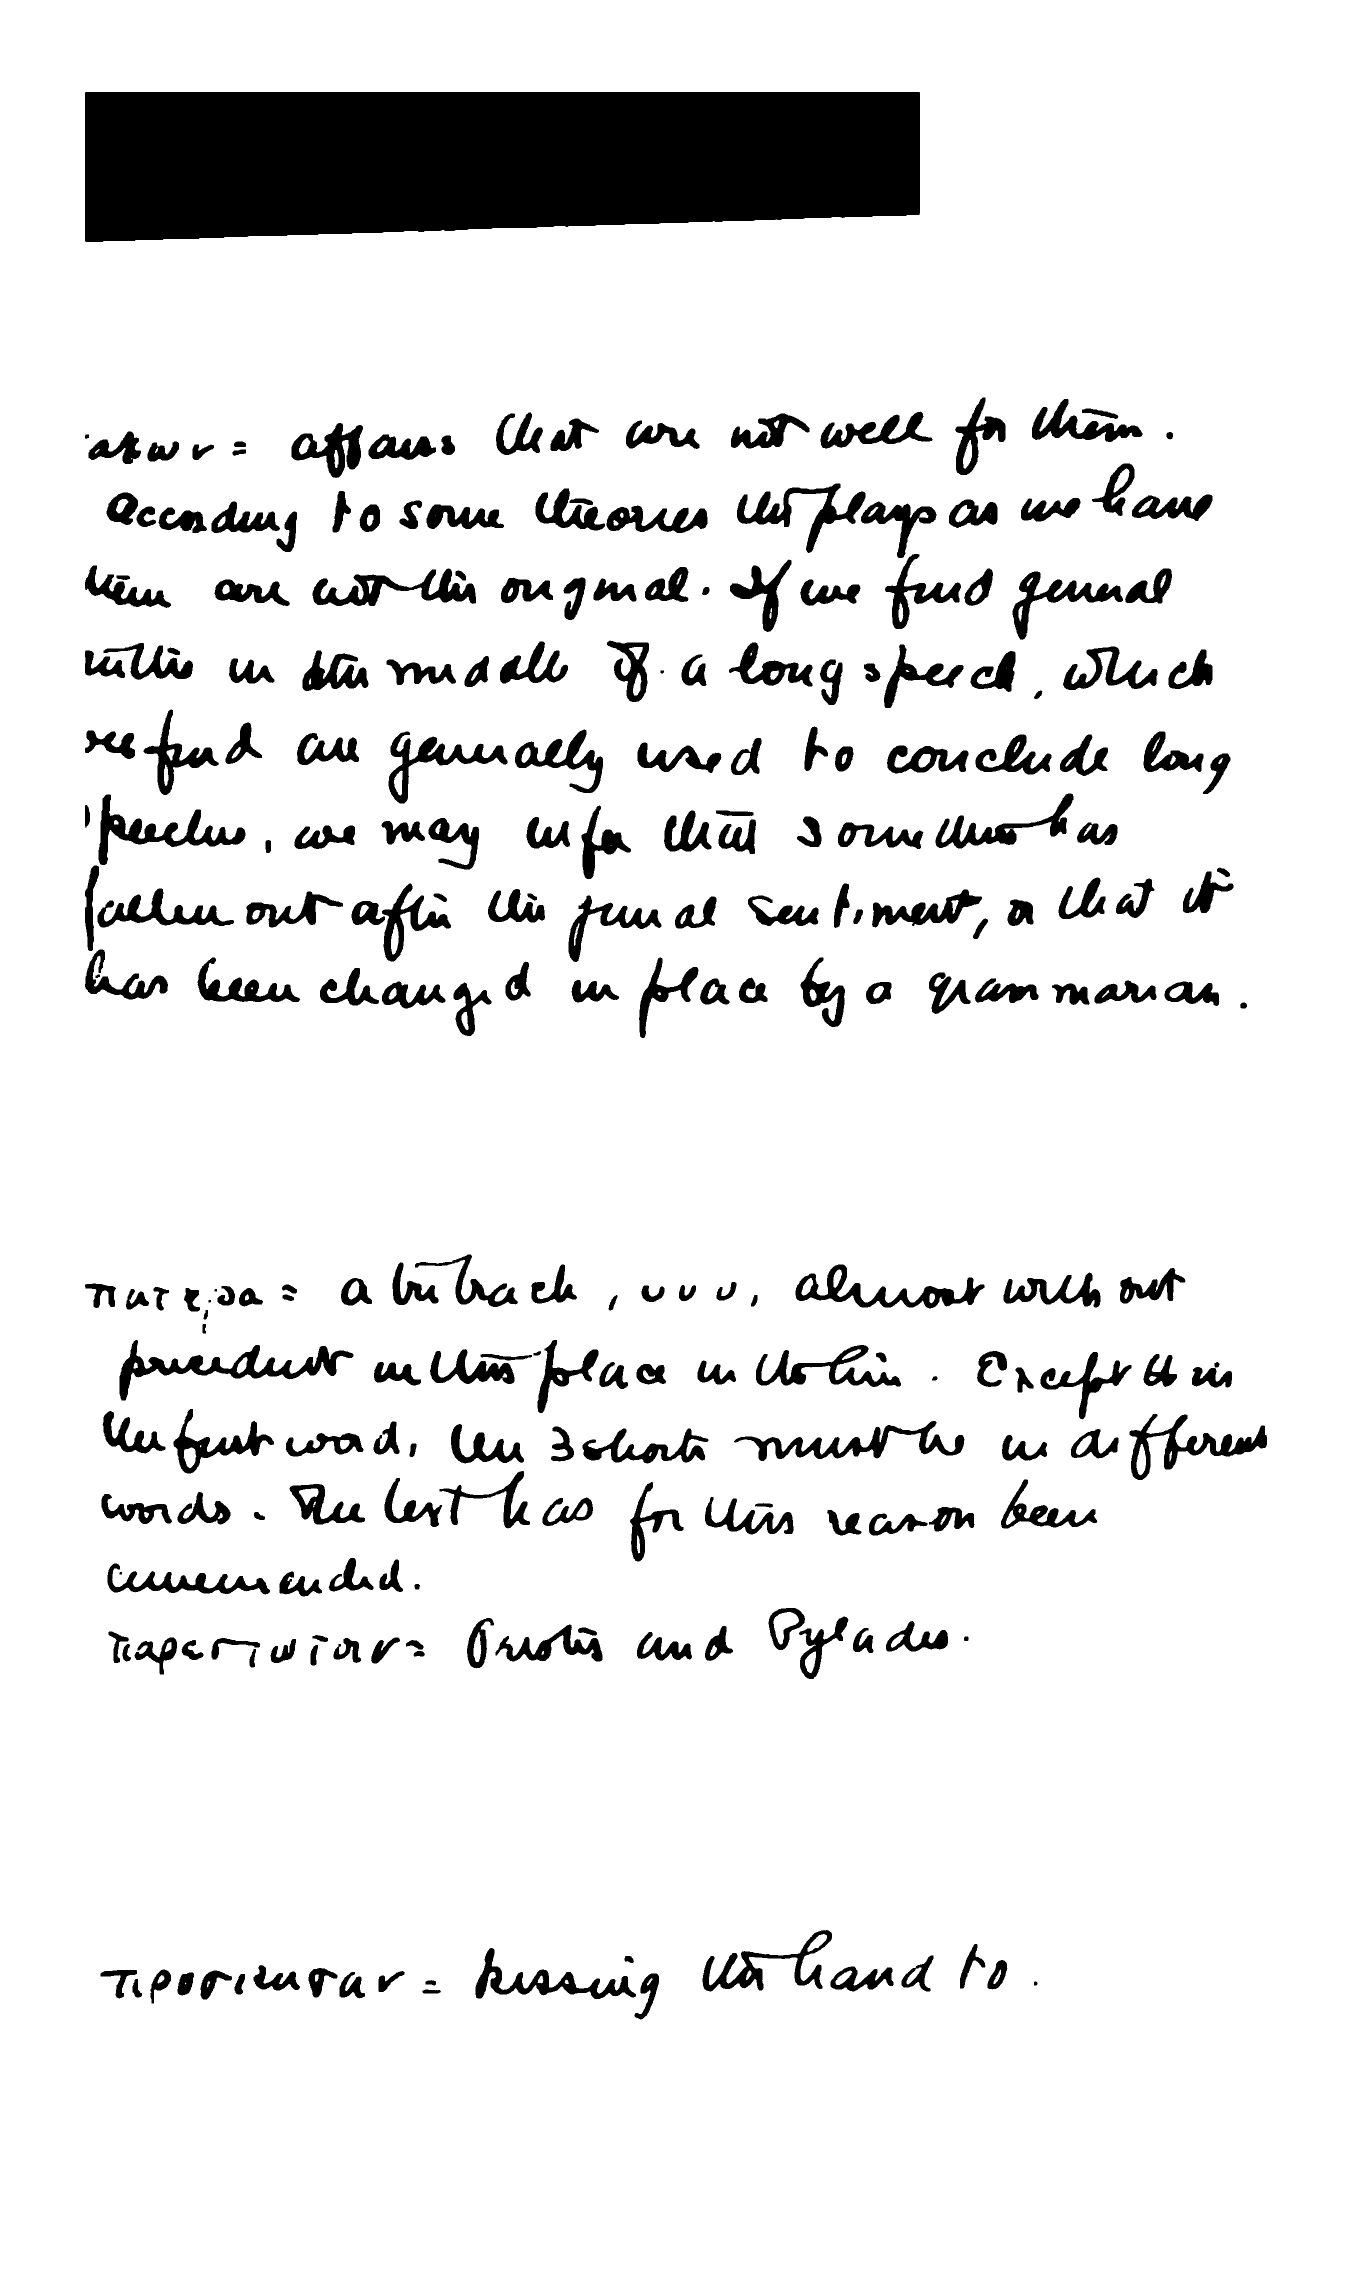 ακων = affairs that are not well for them.
According to some theories the plays as we have
them are not the original. If we find general
in the middle of a long speech, which
we find are generally used to conclude long
speeches, we may infer that some has
fallen out after the general sentiment, or that it
has been changed in place by a grammarian.
πατερα = a tribrach, ᴗ ᴗ ᴗ, almost without
precedent in this place in the line. Except it is
the first word, the 3 shorts must be in different
words. The text has for this reason been
emmended.
παρεστωτοιν = Orestes and Pylades.
= kissing the hand to.